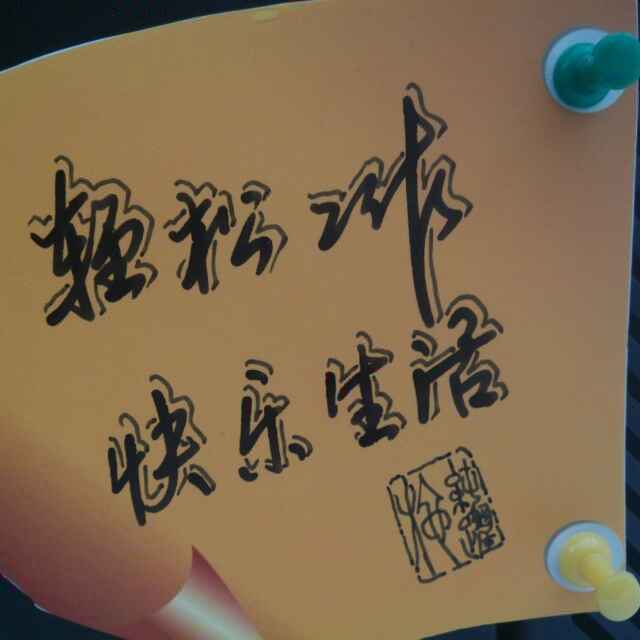 轻松工作
快乐生活